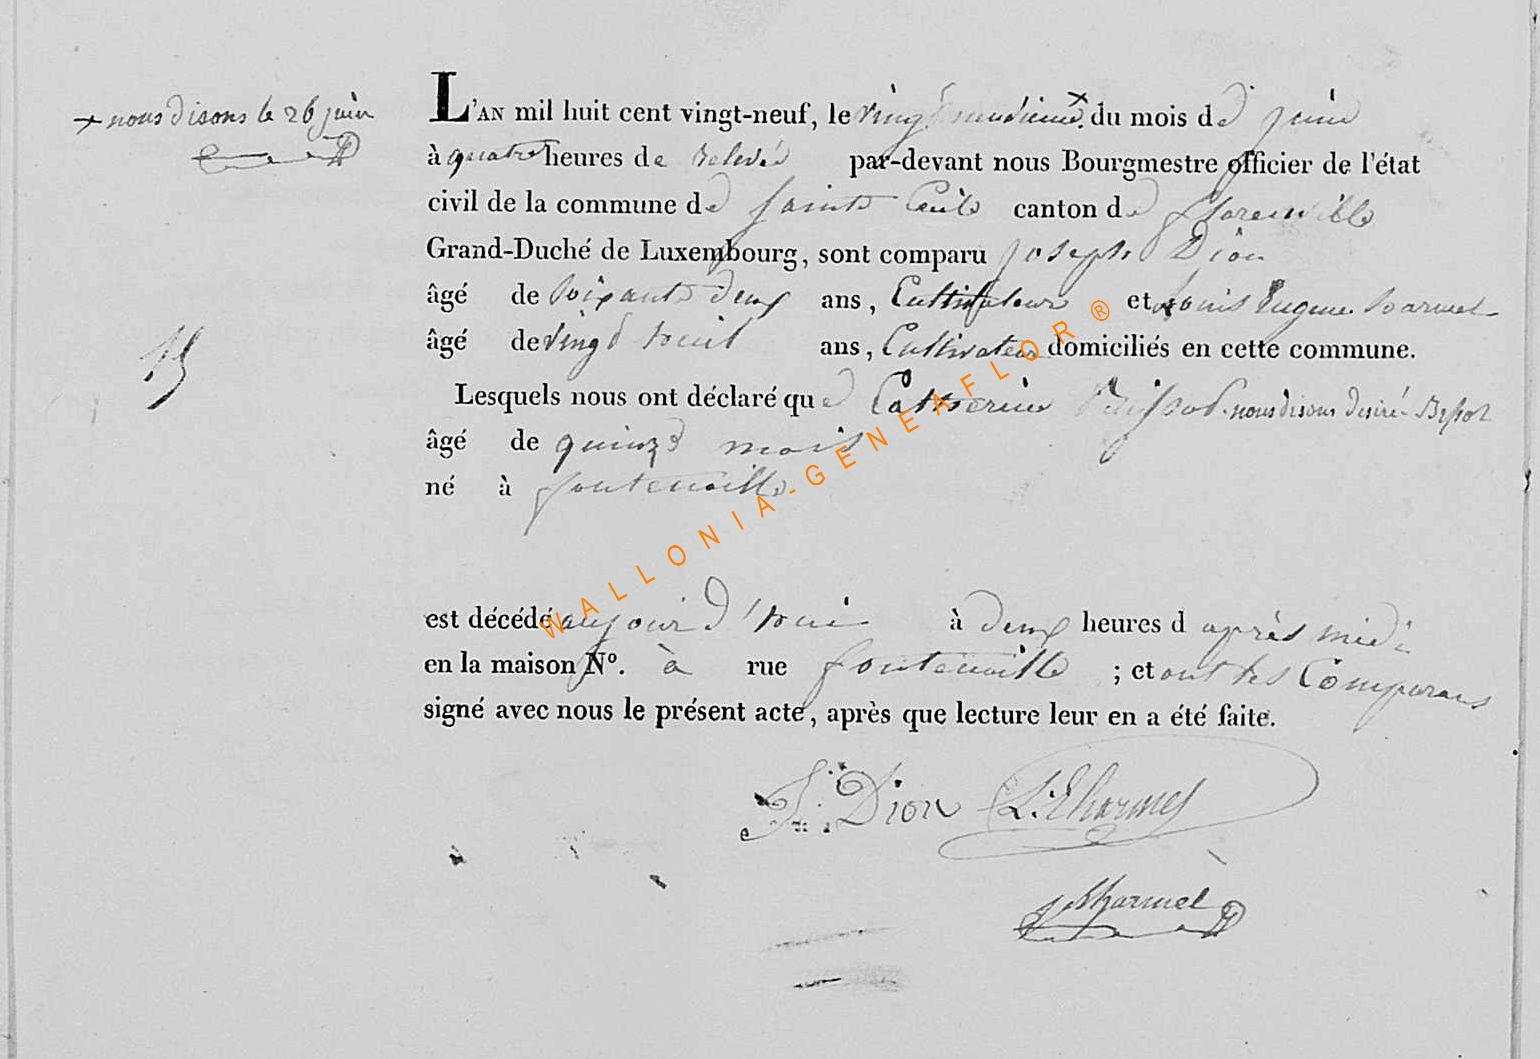 + nous disons le 26 juin
L'AN mil huit cent vingt-neuf, le vingt neuvieme + du mois de juin
à quatre heures de relevé par-devant nous Bourgmestre officier de l'état
civil de la commune de Sainte Cecile canton de Florenville
Grand-Duché de Luxembourg, sont comparu joseph Dion
âgé de soixante deux ans, Cultivateur et Louis Eugene harmel
15
âgé de vingt huit ans, Cultivateur domiciliés en cette commune.
Lesquels nous ont déclaré que Catherine nous disons desiré
âgé de quinze mois
né à fontenoille
est décédé aujourd'hui à deux heures d après midi
en la maison N°. à rue fontenoille ; et ont les Comparans
signé avec nous le présent acte, après que lecture leur en a été faite.
J. Dion L. E harmel
harmel
WALLONIA-GENEAFLOR®